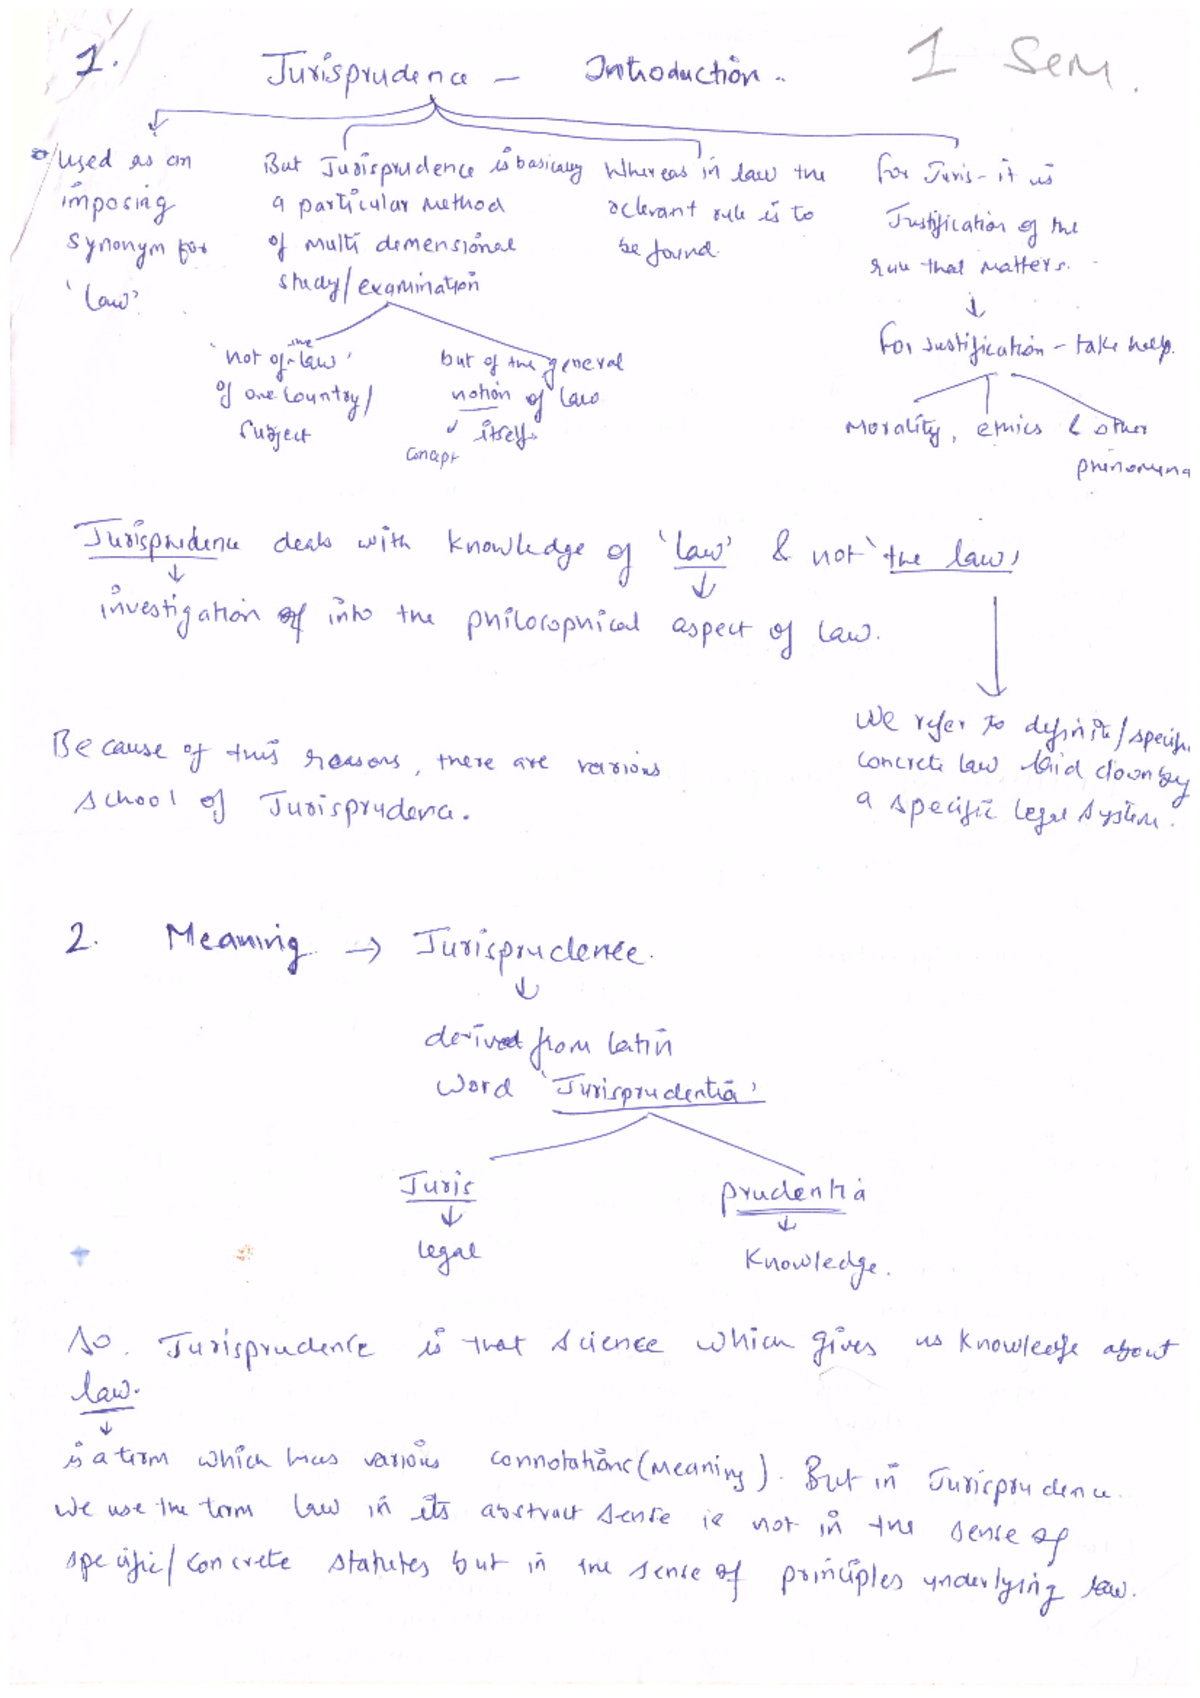 1. Jurisprudence - Introduction.. 1 Sem.
used as an
imposing
synonym for
'law'
But Jurisprudence is basically
a particular method
of multi dimensional
study/examination
'not of the law'
of one country/
subject
but of the general
notion of law
itself.
concept
Whereas in law the
relevant rule is to
be found.
for Juris - it is
Justification of the
rule that matters. -
for justification - take help.
Morality, ethics & other
phenomena
Jurisprudence deals with knowledge of 'law' & not 'the law'
investigation of into the philosophical aspect of law.
We refer to definite/specific
concrete law laid down by
a specific legal system.
Because of this reasons, there are various
school of Jurisprudence.
2. Meaning → Jurisprudence.
derived from latin
word 'Jurisprudentia'
Juris prudentia
legal Knowledge.
So, Jurisprudence is that science which gives us knowledge about
law.
is a term which has various connotations (meaning). But in Jurisprudence
we use the term law in its abstract sense ie not in the sense of
specific/concrete statutes but in the sense of principles underlying law.